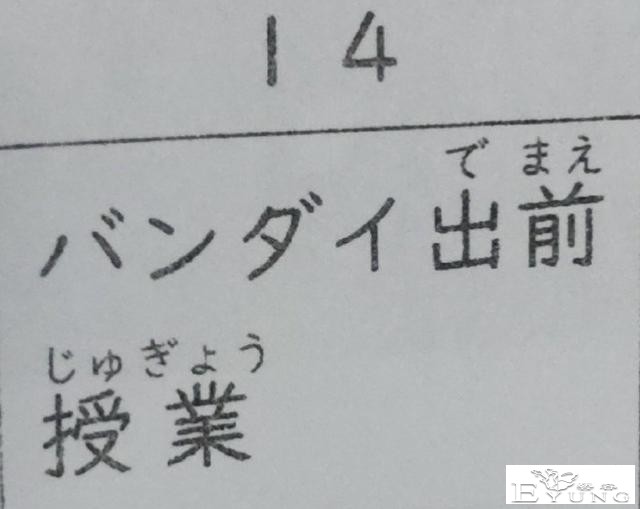 14
でまえ
バンダイ出前
じゅぎょう
授業
EYUNG